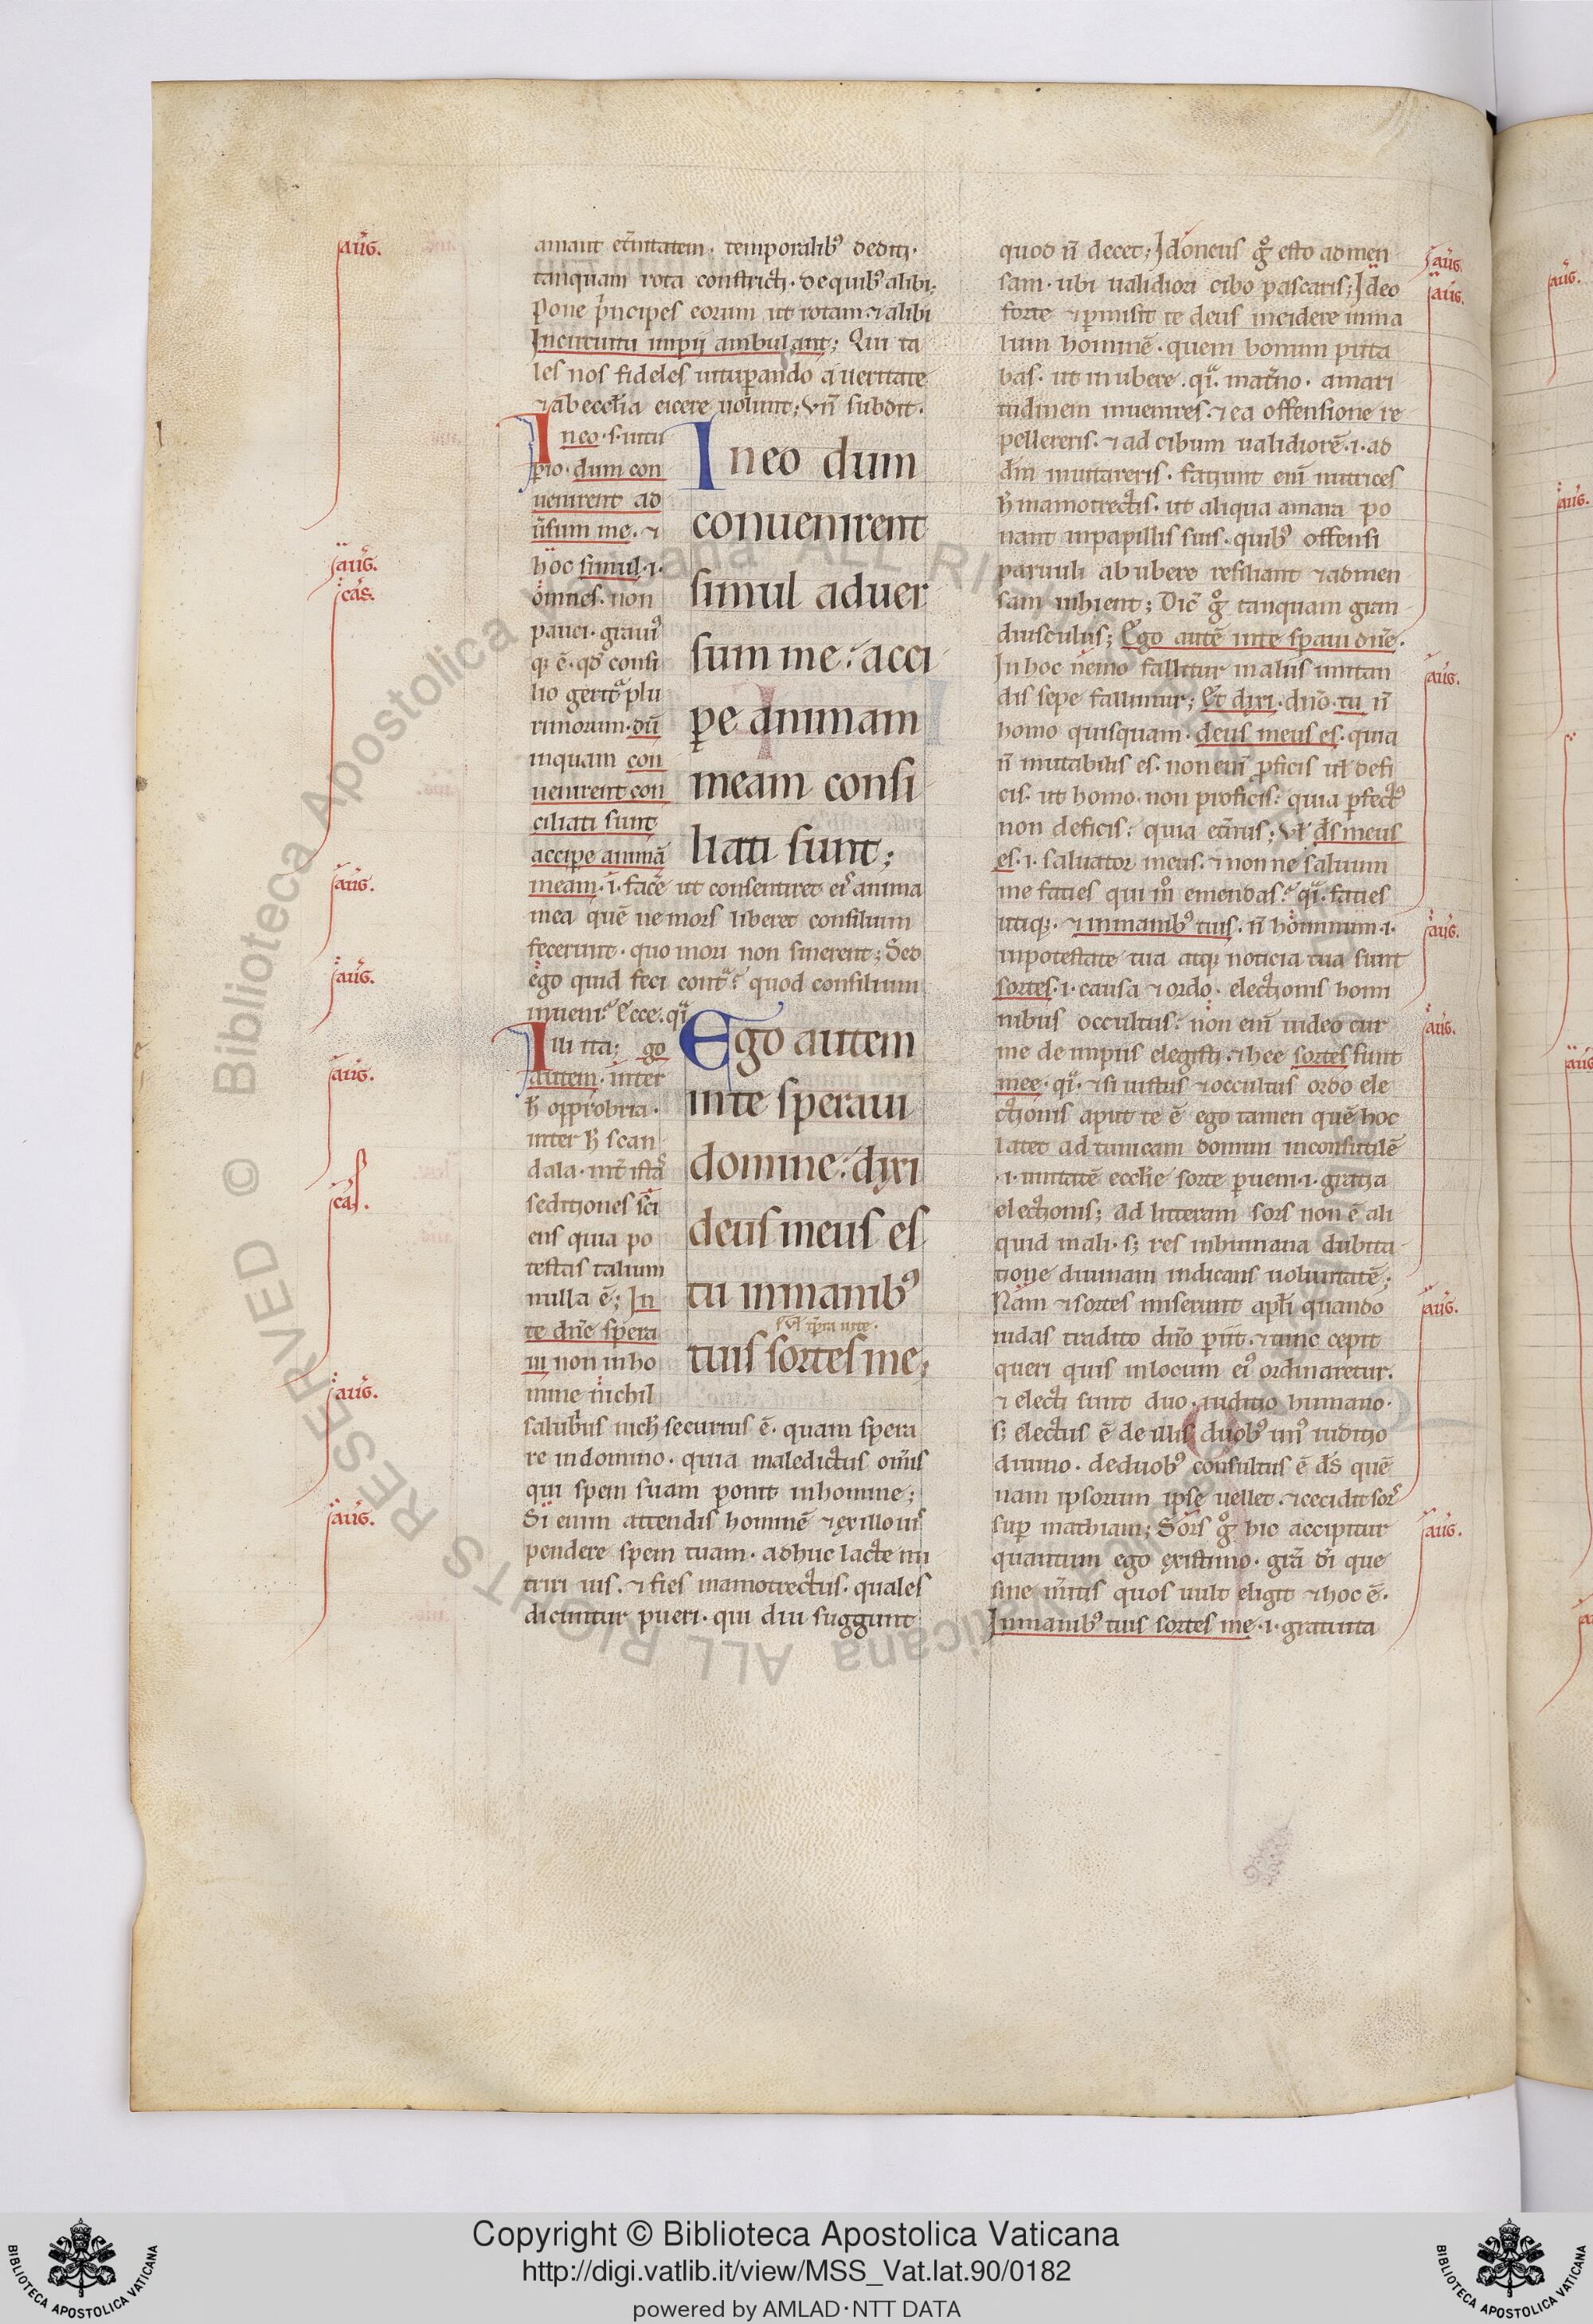 amant et̄nitatem. temporalib⁹ dediti.
tanquam rota constricti. de quib⁹ alibi;
Pone p̄ncipes eorum ut rotam. ⁊ alibi
In circuitu impii ambulant; Qui ta
les nos fideles uituꝑando a ueritate
⁊ ab eccl̄ia eicere uolunt; Vn̄ subdit.
In eo .s. uitu
ꝑio. dum con
uenirent ad
ūsum me. ⁊
hoc simul .i.
omnes. non
pauci. graui⁹
q; ē. qd̄ consi
lio gerit᷑ plu
rimorum. dū
inquam con
uenirent con
ciliati sunt
accipe animā
meam .i. facē ut consentiret ei⁹ anima
mea quē ne mors liberet consilium
fecerunt. quo mori non sinerent; Sed
ego quid feci contᵃ? quod consilium
inueni? Ecce. qᷓ.
In eo dum
conuenirent
simul aduer
sum me: acci
pe animam
meam consi
liati sunt;
Illi ita; go
autem. inter
h̄ opprobria.
inter h̄ scan
dala. int̄ ista
seditiones sci
ens quia po
testas talium
nulla ē; In
te dn̄e spera
ui non in ho
mine nichil
salubrius nich̄ securius ē. quam spera
re in domino. quia maledictus om̄is
qui spem suam ponit in homine;
Si enim attendis hominē ⁊ ex illo uis
pendere spem tuam. adhuc lacte nu
triri uis. ⁊ fies mamotrectus. quales
dicuntur pueri. qui diu suggunt
Ego autem
in te speraui
domine: dixi
deus meus es
tu in manib⁹
tuis sortes me;
quod n̄ decet; Idoneus ḡ esto ad men
sam. ubi ualidiori cibo pascaris; Ideo
forte ⁊ ꝑmisit te deus incidere in ma
lum hominē. quem bonum puta
bas. ut in ubere. qᷓ. mat̄no. amari
tudinem inuenires. ⁊ ea offensione re
pellereris. ⁊ ad cibum ualidiorē .i. ad
dn̄i inuitareris. faciunt eni᷑ nutrices
h̄ mamotrectis. ut aliqua amara po
nant in papillis suis. quib⁹ offensi
paruuli ab ubere resiliant ⁊ ad men
sam inhient; Dic̄ ḡ tanquam gran
diusculus; Ego autē in te sꝑaui dn̄e.
In hoc nemo fallitur malus imitan
dis sepe fallimur; Et dixi. dn̄o. tu n̄
homo quisquam. deus meus es. quia
n̄ mutabilis es. non eni᷑ ꝓficis ul̄ defi
cis. ut homo. non proficis: quia ꝑfect⁹
non deficis: quia et̄nus; Vl̄ ds̄ meus
es .i. saluator meus. ⁊ non ne saluum
me facies qui m̊ emendas? qᷓ. facies
utiq;. ⁊ in manib⁹ tuis. n̄ hominum .i.
in potestate tua atq; noticia tua sunt
sortes .i. causa ⁊ ordo. electionis homi
nibus occultus: non eni᷑ uideo cur
me de impiis elegisti. ⁊ hee sortes sunt
mee. qᷓ. ⁊ si iustus ⁊ occultus ordo ele
ctionis aput te ē ego tamen quē hoc
latet ad tunicam domini inconsutilē
.i. unitatē eccl̄ie sorte ꝑueni .i. gratia
electionis; Ad litteram sors non ē ali
quid mali. s; res in humana dubita
tione diuinam indicans uoluntatē;
Nam ⁊ sortes miserunt apl̄i quando
iudas tradito dn̄o ꝑiit. ⁊ tunc cepit
queri quis in locum ei⁹ ordinaretur.
⁊ electi sunt duo. iuditio humano.
s; electus ē de illis duob⁹ un⁹ iuditio
diuino. de duob⁹ consultus ē ds̄ quē
nam ipsorum ipse uellet. ⁊ cecidit sors
suꝑ mathiam; Sors ḡ hic accipitur
quantum ego existimo. gr̄a di᷑ que
sine m̄itis quos uult eligit ⁊ hoc ē.
In manib⁹ tuis sortes me .i. gratuita
auḡ.
auḡ.
cas̄.
auḡ.
auḡ.
auḡ.
cas̄.
auḡ.
auḡ.
auḡ.
auḡ.
auḡ.
auḡ.
auḡ.
auḡ.
auḡ.
auḡ.
auḡ.
Copyright © Biblioteca Apostolica Vaticana
http://digi.vatlib.it/view/MSS_Vat.lat.90/0182
powered by AMLAD·NTT DATA
BIBLIOTECA APOSTOLICA VATICANA
BIBLIOTECA APOSTOLICA VATICANA